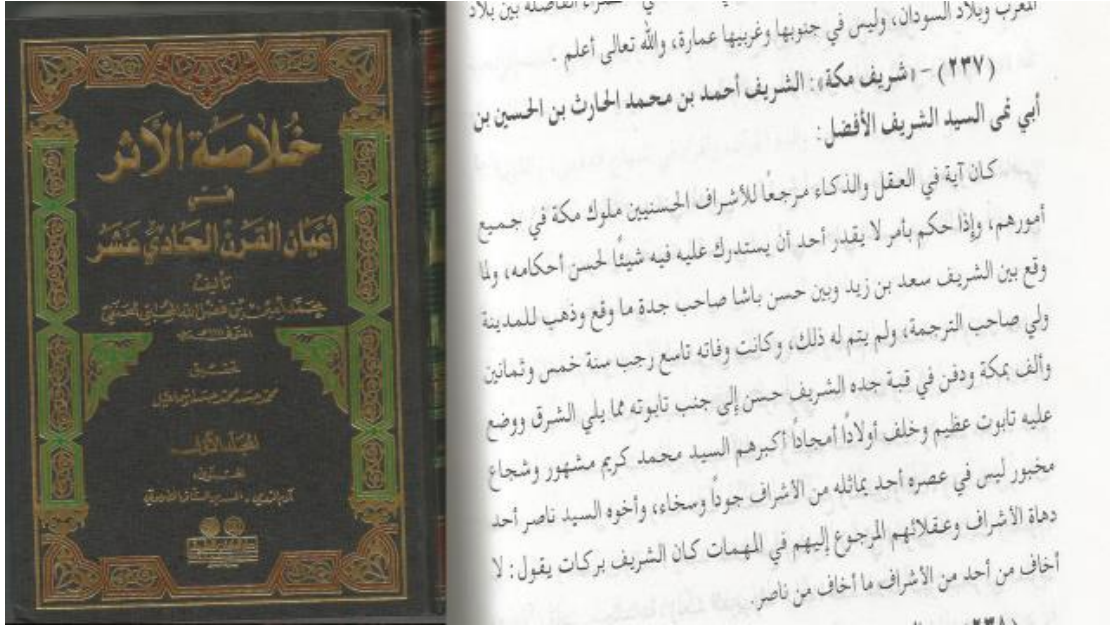 خلاصة الأثر
في
أعيان القرن الحادي عشر
تأليف
محمد أمين بن فضل الله المحبي الحنفي
تحقيق
محمد حسن محمد حسن إسماعيل
المجلد الأول
المحتوى
المغرب وبلاد السودان، وليس في جنوبها وغربيها عمارة، والله تعالى أعلم .
(٢٣٧) - «شريف مكة»: الشريف أحمد بن محمد الحارث بن الحسين بن
أبي نمى السيد الشريف الأفضل.
كان آية في العقل والذكاء مرجعًا للأشراف الحسنيين ملوك مكة في جميع
أمورهم، وإذا حكم بأمر لا يقدر أحد أن يستدرك عليه فيه شيئًا لحسن أحكامه، ولما
وقع بين الشريف سعد بن زيد وبين حسن باشا صاحب جدة ما وقع وذهب للمدينة
ولي صاحب الترجمة، ولم يتم له ذلك، وكانت وفاته تاسع رجب سنة خمس وثمانين
وألف بمكة ودفن في قبة جده الشريف حسن إلى جنب تابوته مما يلي الشرق ووضع
عليه تابوت عظيم وخلف أولادًا أمجادًا أكبرهم السيد محمد كريم مشهور وشجاع
مخبور ليس في عصره أحد يماثله من الأشراف جودًا وسخاء، وأخوه السيد ناصر أحد
دهاة الأشراف وعقلائهم المرجوع إليهم في المهمات كان الشريف بركات يقول: لا
أخاف من أحد من الأشراف ما أخاف من ناصر.